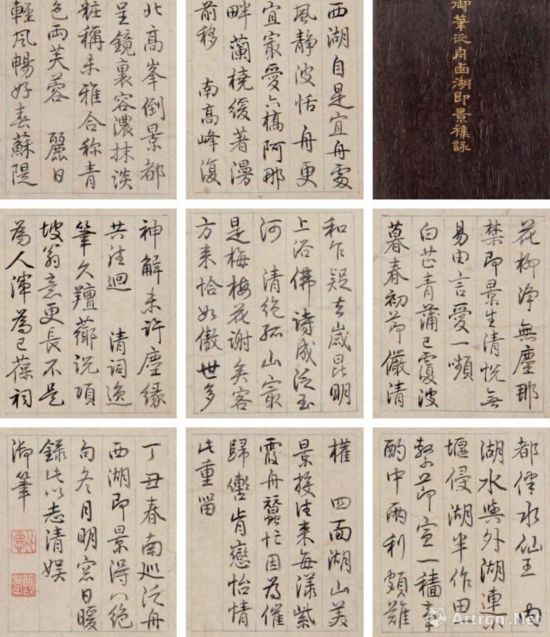 御筆泛舟西湖即景雜詠
西湖自是宜舟處
風静波恬舟更
宜最愛六橋阿那
畔蘭橈緩著漫
前移 南高峰復
北高峯倒景都
呈鏡裏容濃抹淡
粧稱未雅合称青
色兩芙蓉 麗日
輕風暢好春蘇隄
花柳淨無塵那
禁即景生清悦無
易由言愛一嚬
白芷青蒲已覆波
暮春初節儼清
和乍疑去歲昆明
上浴佛詩成泛玉
河 清絶孤山最
是梅梅花謝矣客
方来恰如傲世多
神解未許塵緣
共往迴 清詞逸
筆久羶薌說項
坡翁意更長不是
為人渾為己葆祠
都傍水仙王 内
湖水與外湖連
堰侵湖半作田
節宣一穡事
酌中兩利頗難
權 四面湖山美
景投往来每漾紫
霞舟蠶忙因為催
歸轡肯戀怡情
此重留
丁丑春南巡泛舟
西湖即景得八絶
句冬月明窓日暖
録此以志清娱
御筆
Artron.Net